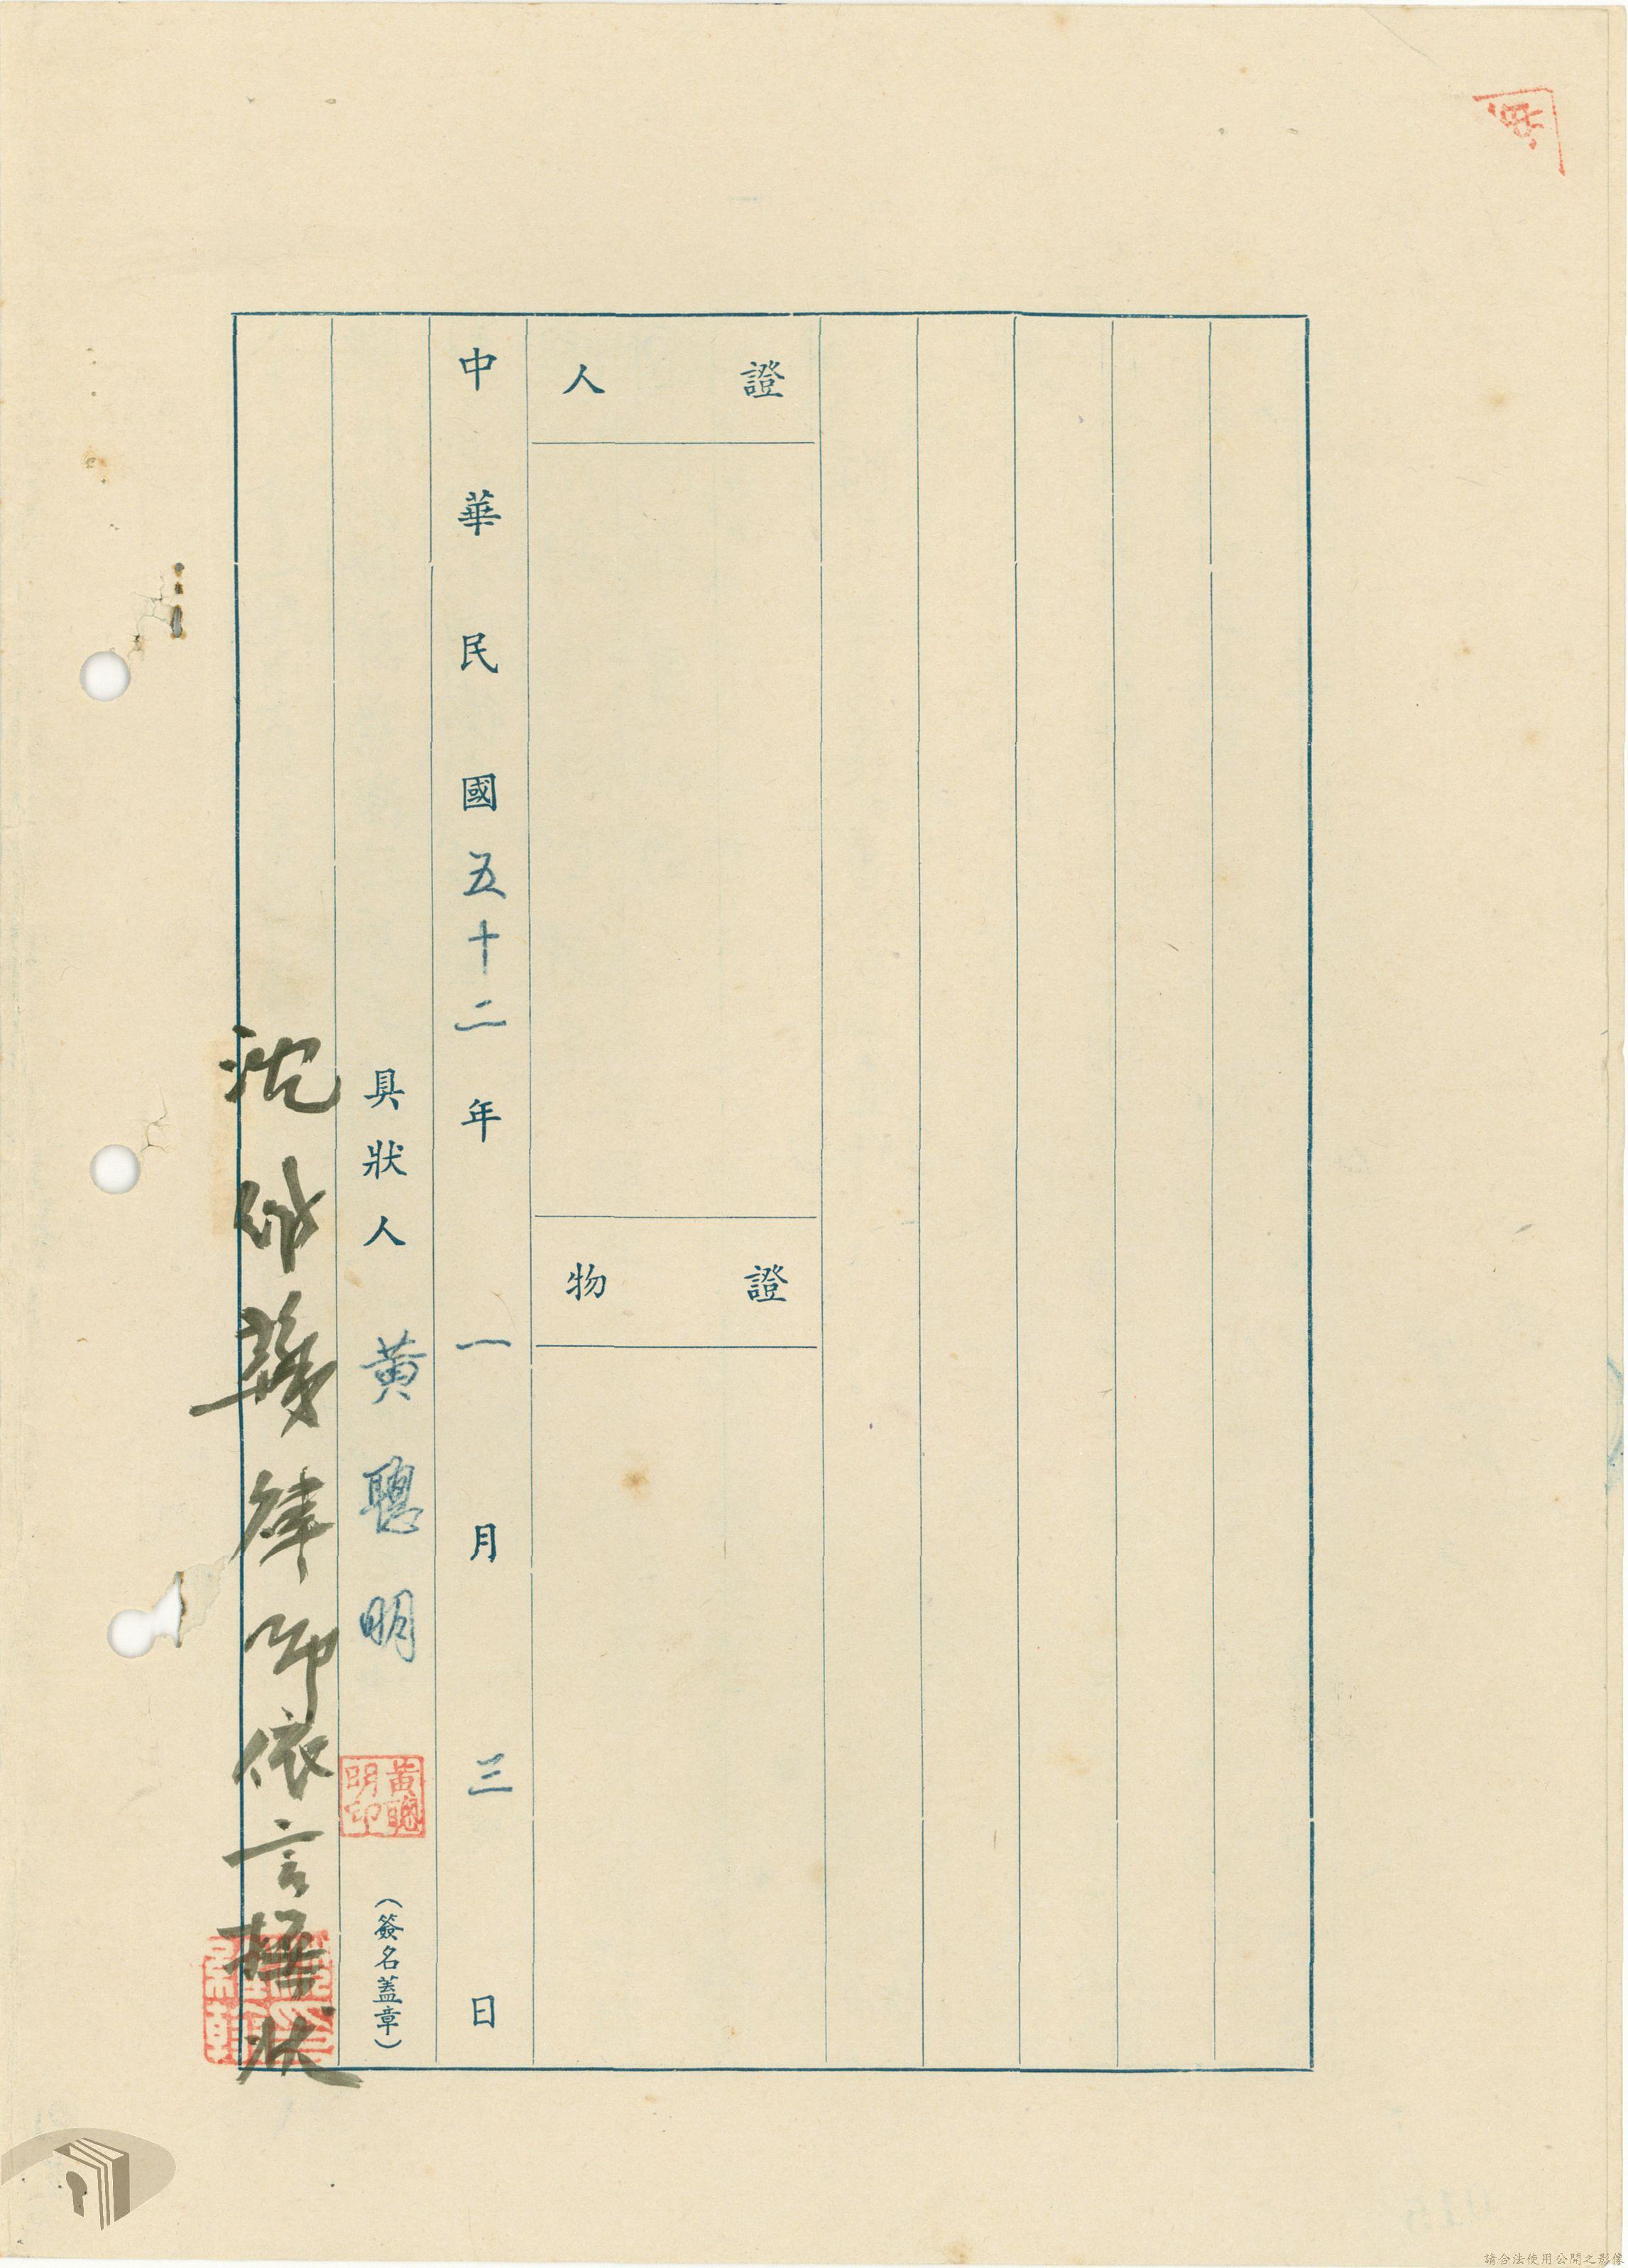 證人
證物
中華民國五十二年一月三日
具狀人 黃聰明 (簽名蓋章)
黃聰明印
律師依言撰狀
請合法使用公開之影像